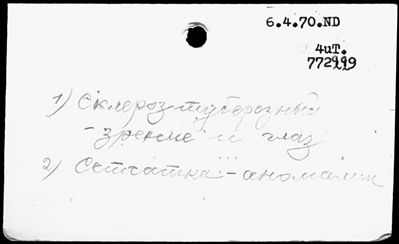 6.4.70.ND
4иТ.
772999
1) Склероз туберозный
- зрение и глаз
2) Сетчатка - аномалии